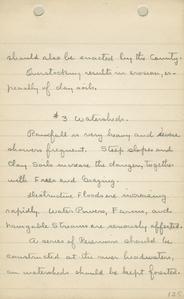 should also be enacted by the County.
Overstocking results in erosion, es-
pecially of clay soils.
#3 Watersheds.
Rainfall is very heavy and severe
showers frequent. Steep slopes and
Clay Soils increase the danger, together
with Fires and Grazing.
Destructive Floods are increasing
rapidly. Water Powers, Farms, and
Navigable Streams are seriously affected.
A series of Reservoirs should be
constructed at the river headwaters,
and watersheds should be kept forested.
125